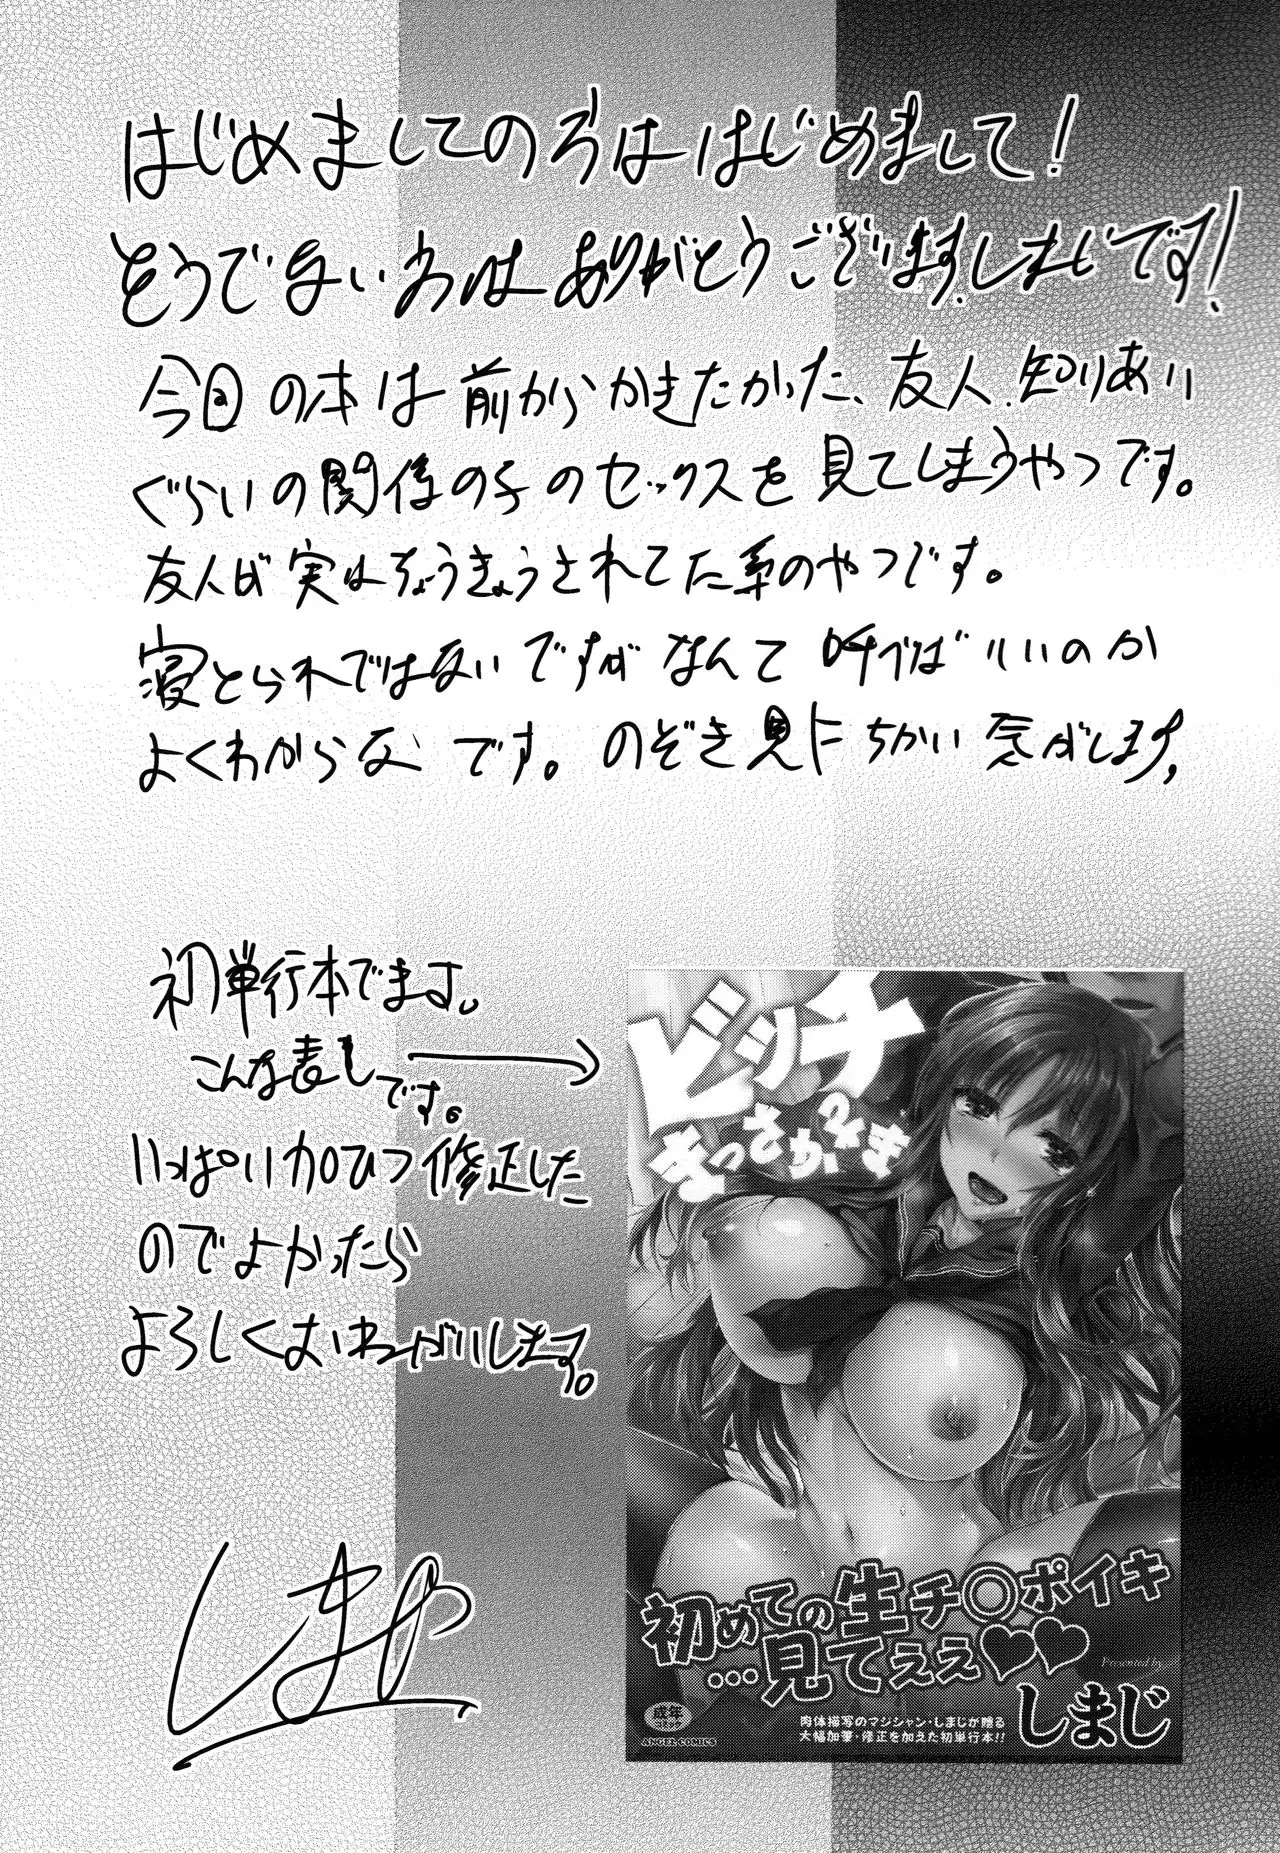 はじめましての方ははじめまして!
そうでない方はありがとうございます.しまじです!
今回の本は前からかきたかった、友人.知りあい
ぐらいの関係の子のセックスを見てしまうやつです。
友人が実はちょうきょうされてた系のやつです。
寝とられではないですがなんて呼べばいいのか
よくわからないです。のぞき見にちかい気がします。
初単行本でます。
こんな表しです。
いっぱい加ひつ修正した
のでよかったら
よろしくおねがいします。
しまじ
ビッチ
まっさかさま
初めての生チ○ポイキ
…見てぇぇ♥♥
Presented by
しまじ
成年
コミック
ANGEL COMICS
肉体描写のマジシャン・しまじが贈る
大幅加筆・修正を加えた初単行本!!